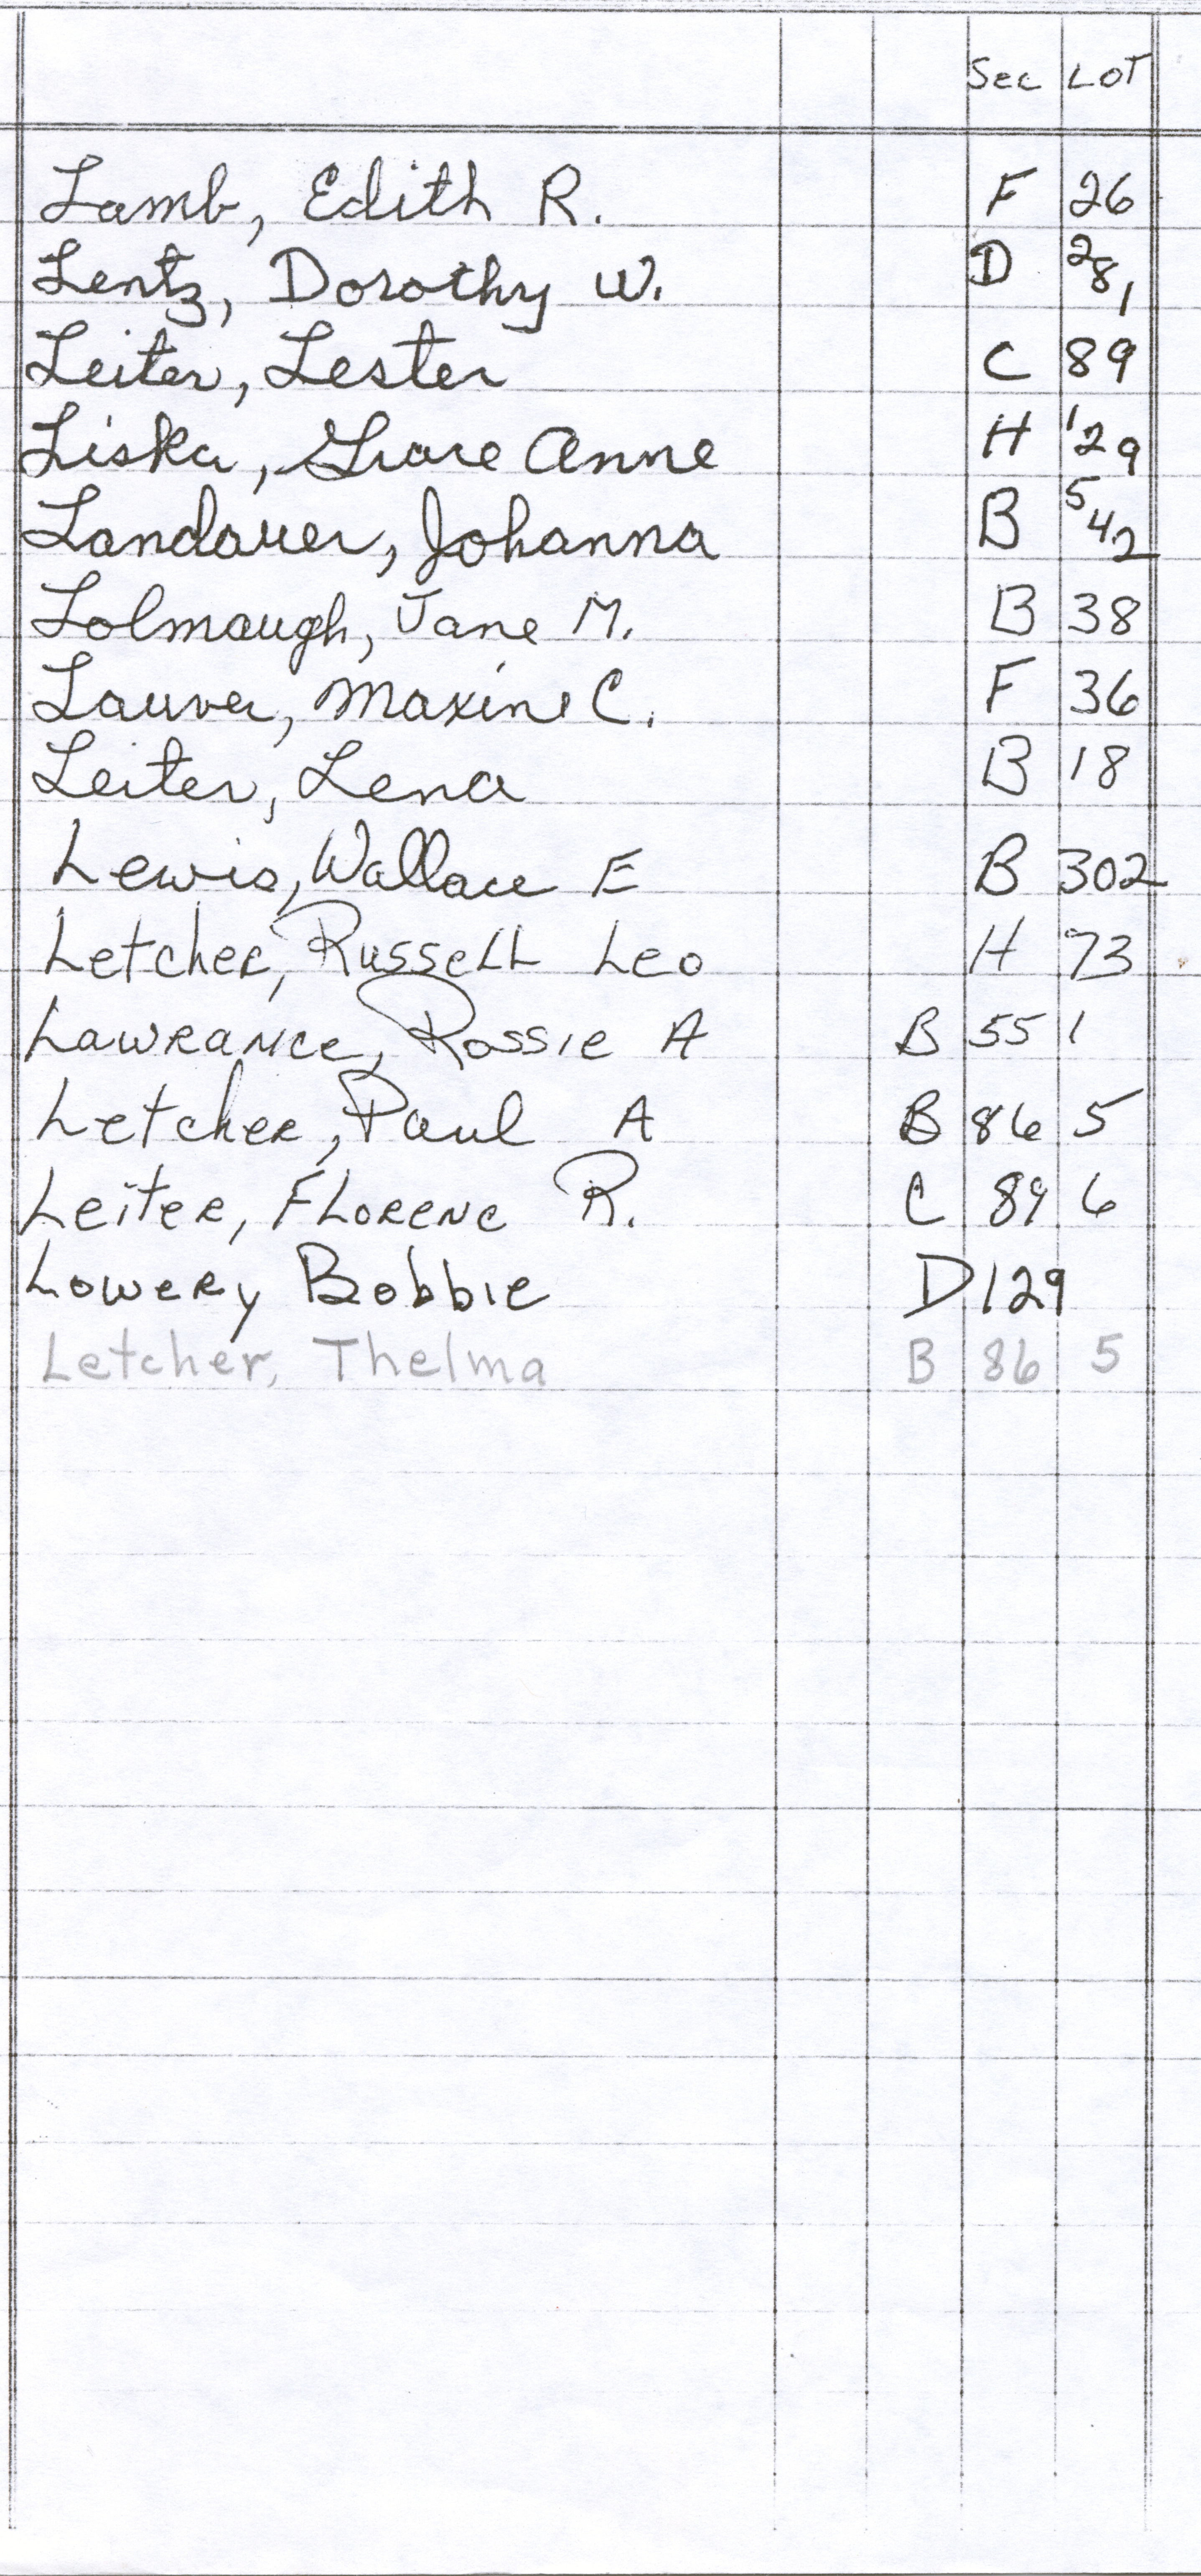 Sec LOT
Lamb, Edith R. F 26
Lentz, Dorothy W. D 281
Leiter, Lester C 89
Liska, Grace Anne H 129
Landauer, Johanna B 542
Lolmaugh, Jane M. B 38
Lauver, Maxine C. F 36
Leiter, Lena B 18
Lewis, Wallace E B 302
Letcher, Russell Leo H 73
Lawrance, Rossie A B 55 1
Letcher, Paul A B 86 5
Leiter, Florenc R. C 89 6
Lowery Bobbie D 129
Letcher, Thelma B 86 5